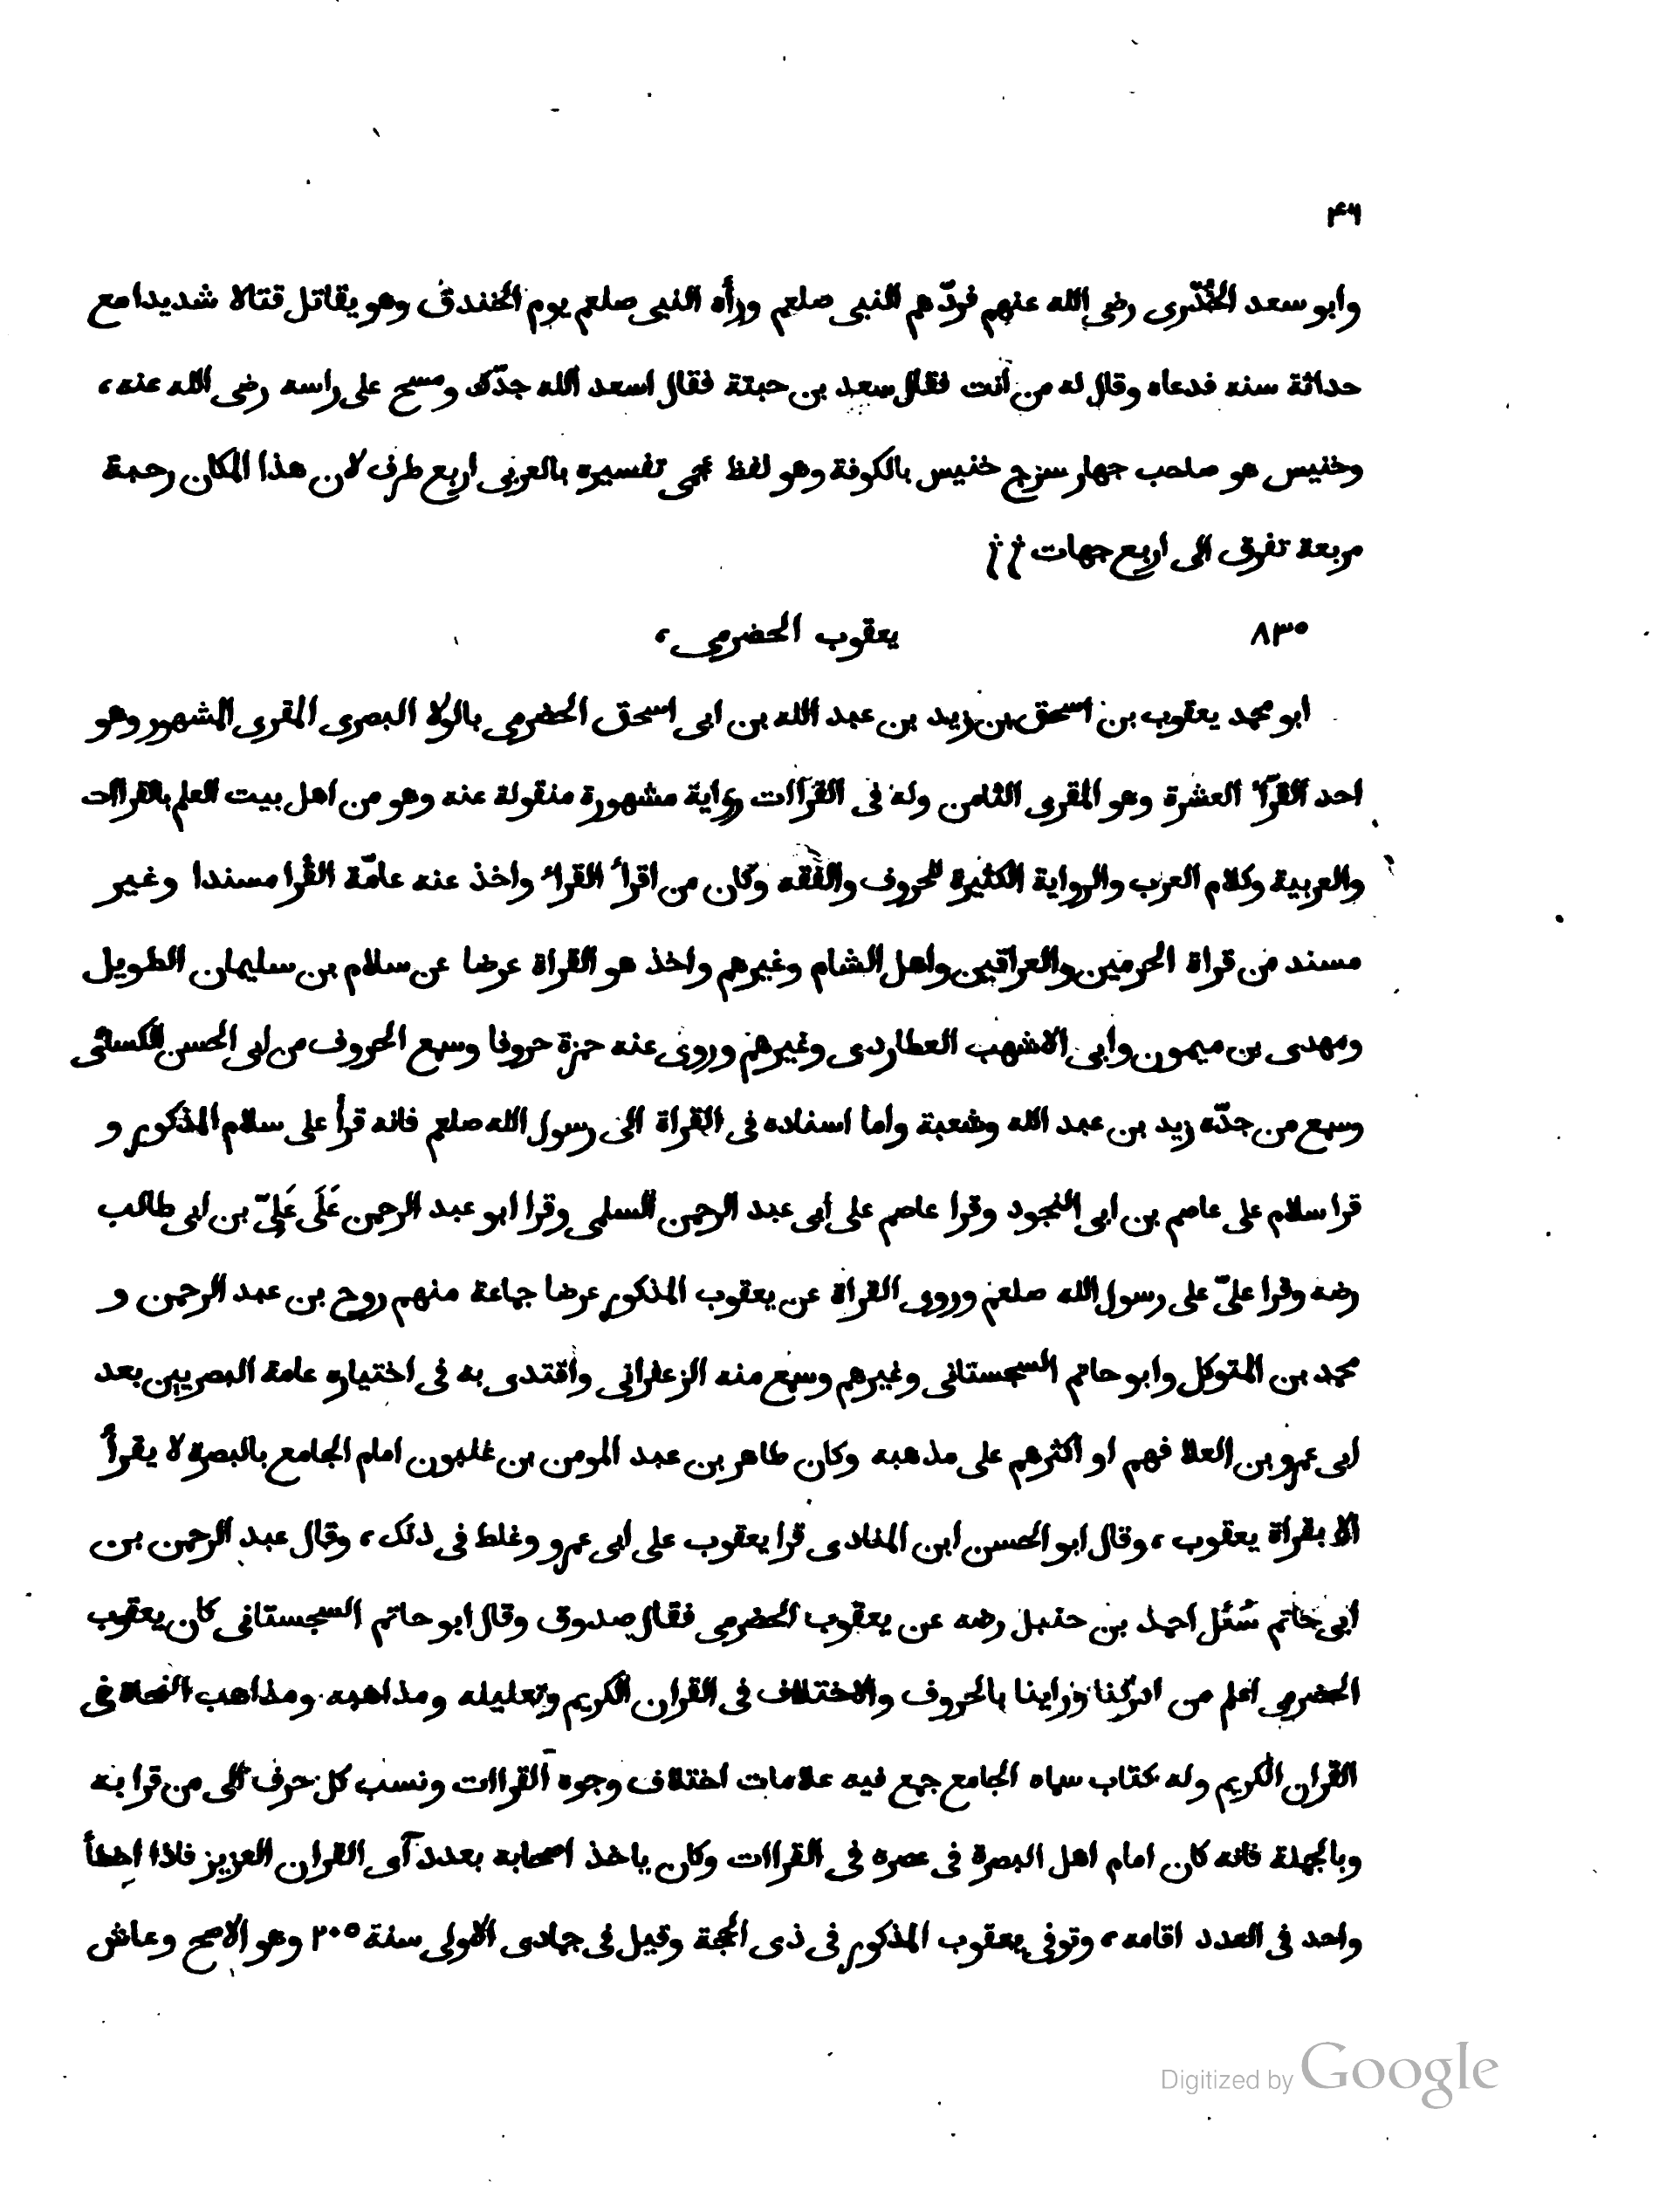 ۴۶
وابو سعد الخُدْرى رضى الله عنهم فردّهم النبى صلعم ورأه النبى صلعم يوم الخندق وهو يقاتل قتالا شديدا مع
حداثة سنه فدعاه وقال له من أنت فقال سعد بن حبتة فقال اسعد الله جدّك ومسح على راسه رضى الله عنه،
وخنيس هو صاحب جهار سرج خنيس بالكوفة وهو لفظ عجمى تفسيره بالعربى اربع طرف لان هذا المكان رحبة
مربعة تفرق الى اربع جهات
٨٣٥
يعقوب الحضرمى،
ابو محمد يعقوب بن اسحق بن زيد بن عبد الله بن ابى اسحق الحضرمى بالولا البصرى المقرى المشهور وهو
احد القرّآ العشرة وهو المقرى الثامن وله فى القرآات رواية مشهورة منقولة عنه وهو من اهل بيت العلم بالقراات
والعربية وكلام العرب والرواية الكثيرة للحروف والفقه وكان من اقرأ القراء واخذ عنه عامّة القرا مسندا وغير
مسند من قراة الحرمين والعراقين واهل الشام وغيرهم واخذ هو القراة عرضا عن سلام بن سليمان الطويل
ومهدى بن ميمون وابى الاشهب العطاردى وغيرهم وروى عنه حمزة حروفا وسمع الحروف من ابى الحسن الكسائى
وسمع من جدّه زيد بن عبد الله وشعبة واما اسناده فى القراة الى رسول الله صلعم فانه قرأ على سلام المذكور و
قرا سلام على عاصم بن ابى النجود وقرا عاصم على ابى عبد الرحمن السلمى وقرا ابو عبد الرحمن عَلَى عَلِىّ بن ابى طالب
رضه وقرا علىّ على رسول الله صلعم وروى القراة عن يعقوب المذكور عرضا جماعة منهم روح بن عبد الرحمن و
محمد بن المتوكل وابو حاتم السجستانى وغيرهم وسمع منه الزعفرانى واقتدى به فى اختياره عامة البصريين بعد
ابى عمرو بن العلا فهم او اكثرهم على مذهبه وكان طاهر بن عبد المومن بن غلبون امام الجامع بالبصرة لا يقرأ
الا بقراة يعقوب، وقال ابو الحسن ابن المنادى قرا يعقوب على ابى عمرو وغلط فى ذلك، وقال عبد الرحمن بن
ابى حاتم سُئل احمد بن حنبل رضه عن يعقوب الحضرمى فقال صدوق وقال ابو حاتم السجستانى كان يعقوب
الحضرمى اعلم من ادركنا وراينا بالحروف والاختلاف فى القران الكريم وتعليله ومذاهبه ومذاهب النحاة فى
القران الكريم وله كتاب سماه الجامع جمع فيه علامات اختلاف وجوه القراات ونسب كل حرف الى من قرا به
وبالجملة فانه كان امام اهل البصرة فى عصره فى القراات وكان ياخذ اصحابه بعدد آى القران العزيز فاذا اخطأ
واحد فى العدد اقامه، وتوفى يعقوب المذكور فى ذى الحجة وقيل فى جمادى الاولى سنة ٢٠٥ وهو الاصح وعاش
Digitized by Google